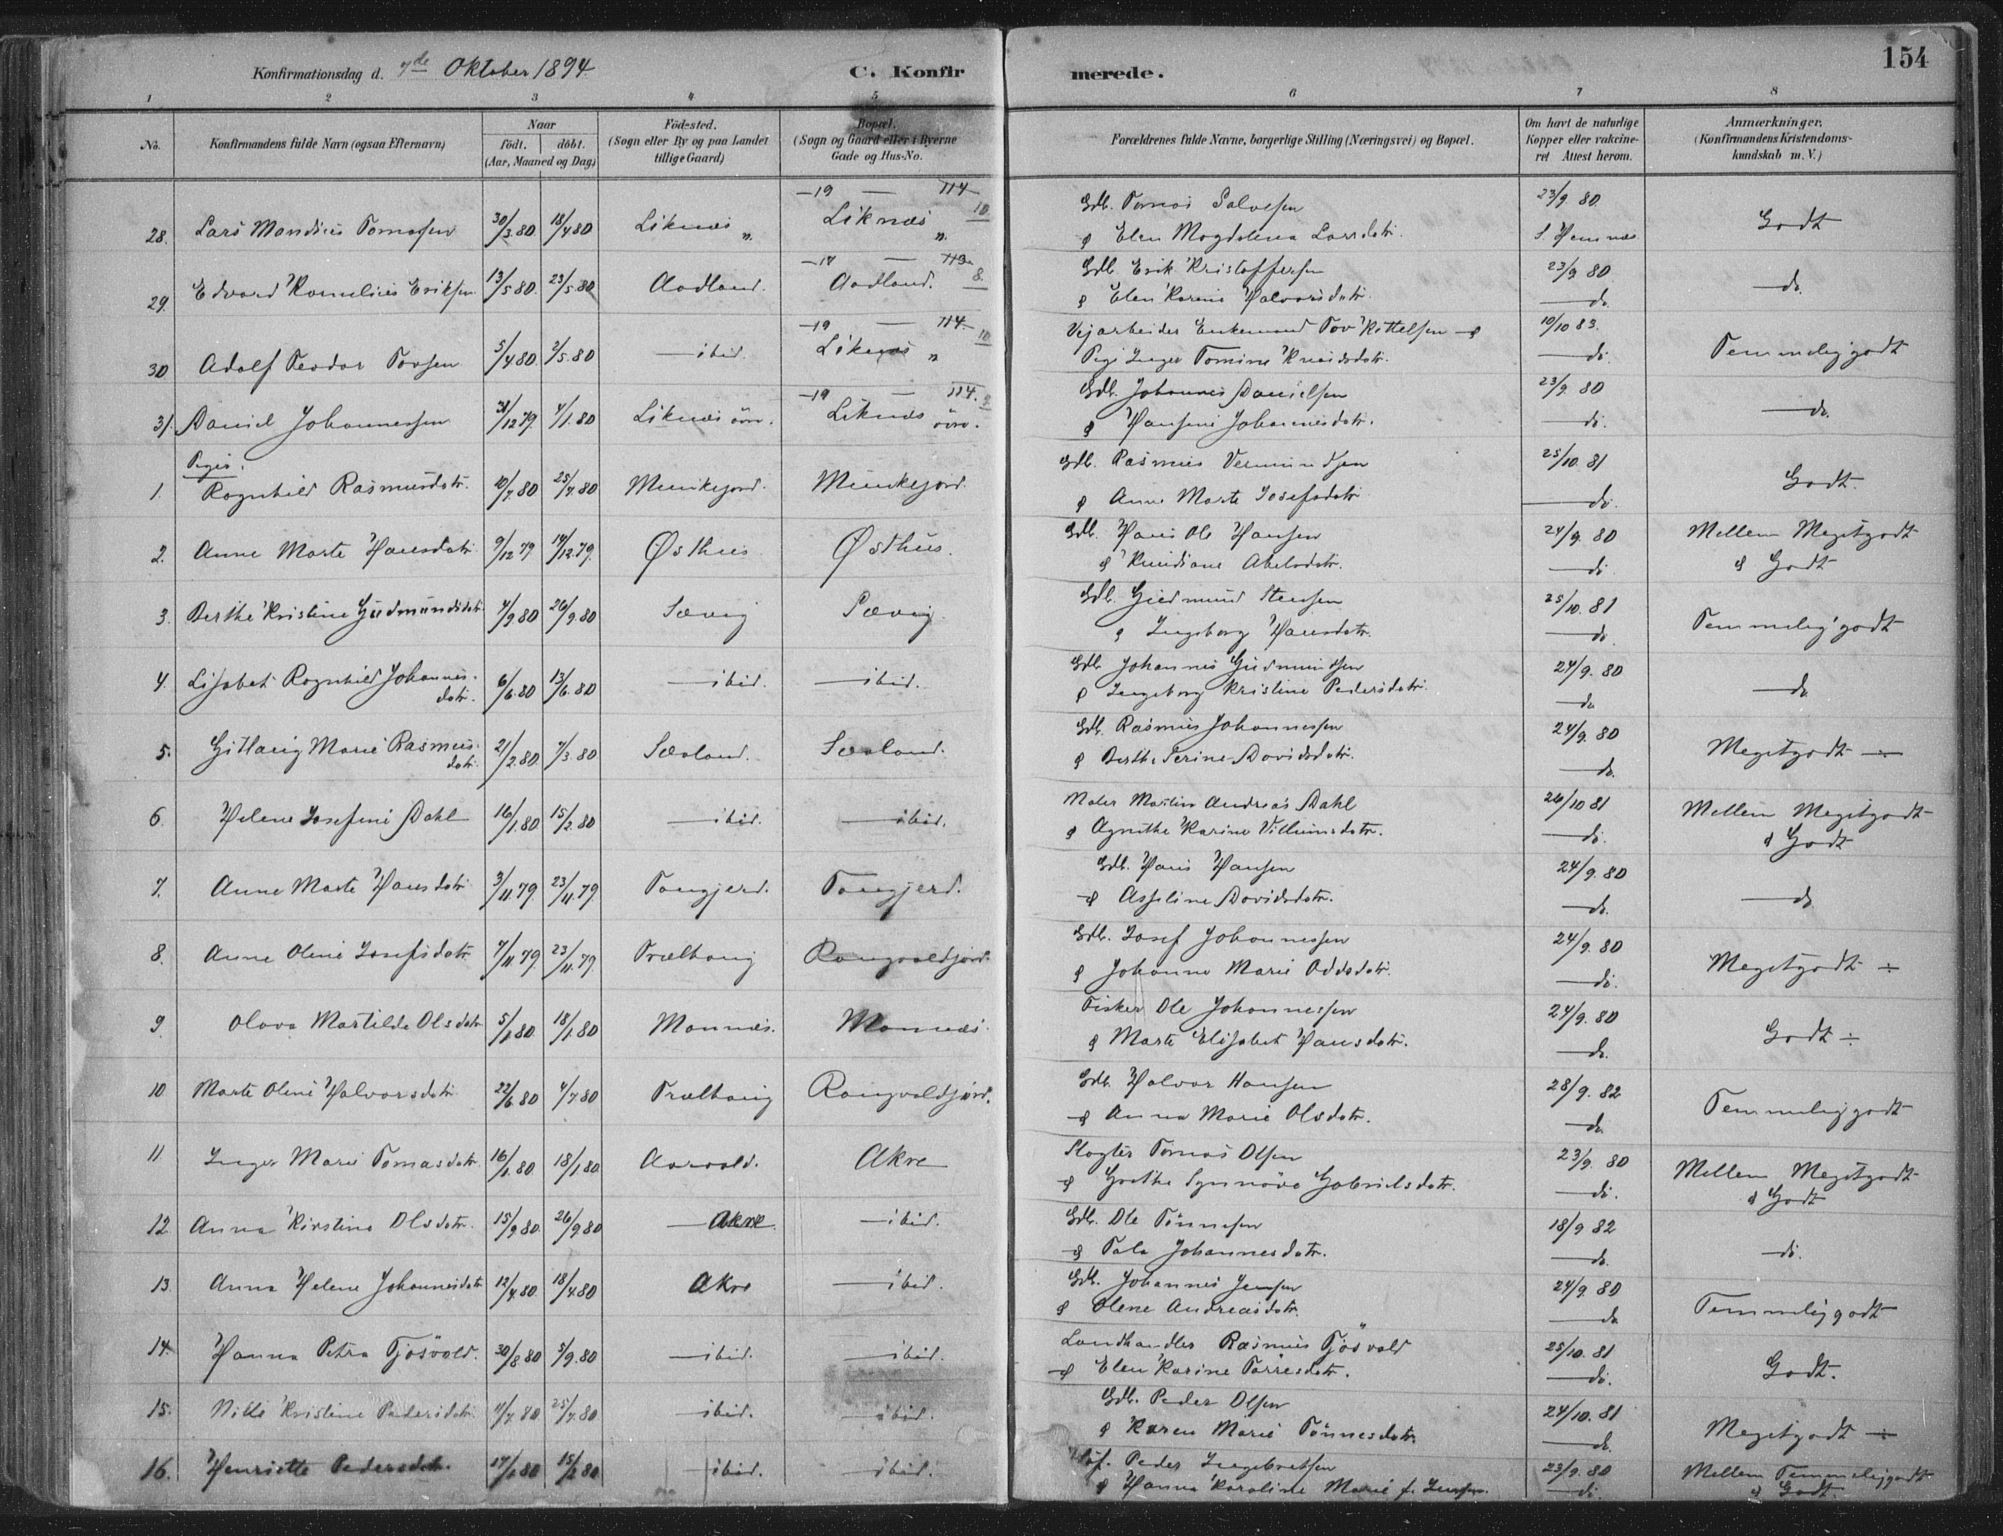 154
Konfirmationsdag d. 7de Oktober 1894
C. Konfirmerede.
1 2 3 4 5 6 7 8
No.
Konfirmandens fulde Navn (ogsaa Efternavn)
Naar
født. døbt.
(Aar, Maaned og Dag)
Fødested.
(Sogn eller By og paa Landet
tillige Gaard)
Bopæl.
(Sogn og Gaard eller i Byerne
Gade og Hus-No.
Forældrenes fulde Navne, borgerlige Stilling (Næringsvei) og Bopæl.
Om havt de naturlige
Kopper eller vakcine-
ret Attest herom.
Anmærkninger.
(Konfirmandens Kristendoms-
kundskab m. V.)
—19 — 114 10
28. Lars Mandius Tomasen 30/3 80 18/4 80 Liknæs „ Liknæs „ Gdb. Tomas Salvesen 23/9 80 Godt
& Elen Magdalena Larsdatr.
—17 — 113 8.
29. Edvard Kornelius Eriksen 13/5 80 23/5 80 Aadland. Aadland. Gdb. Erik Kristoffersen 23/9 80 —do.
& Elen Karine Halvorsdatr. —do.
—19 — 114 10
30 Adolf Teodor Tovsen 5/4 80 2/5 80 —ibid. Liknæs „ Vejarbeider Enkemand Tov Kittelsen & 10/10 83. Temmelig godt
Pige Inger Tomine Knudsdatr. —do.
—19 — 114. 9
31. Daniel Johannessen 31/12 79 4/1 80 Liknæs övr. Liknæs övr. Gdb. Johannes Danielsen 23/9 80 —do.
& Hansine Johannesdatr. —do.
Piger.
1. Ragnhild Rasmusdatr. 10/7 80 25/7 80 Munkejord. Munkejord. Gdb. Rasmus Vermundsen 25/10 81 Godt.
& Anne Marte Josefsdatr —do.
2. Anne Marte Hansdatr 9/12 79 14/12 79. Østhus Østhus. Gdb. Hans Ole Hansen 24/9 80 Mellem Megetgodt
& Knudiane Abelsdatr. —do. & Godt
3. Berthe Kristine Gudmundsdatr 4/9 80 26/9 80 Sævig Sævig. Gdb. Gudmund Stensen 25/10. 81 Temmelig godt
& Ingeborg Hansdatr. —do
4. Lisabet Ragnhild Johannes- 6/6 80 13/6 80 —ibid. —ibid. Gdb. Johannes Gudmundsen 24/9. 80 —do
datr. & Ingeborg Kristine Pedersdatr. —do
5. Gitlaug Marie Rasmus- 21/2 80 7/3 80 Sæaland. Sæaland. Gdb. Rasmus Johannessen 24/9. 80 Megetgodt ÷
datr. & Berthe Serine Davidsdatr. —do.
6. Helene Josefine Dahl 16/1 80 15/2 80 —ibid. —ibid. Maler Martin Andreas Dahl 26/10 81 Mellem Megetgodt
& Agnethe Karine Villumsdatr. —do. & Godt
7. Anne Marte Hansdatr 3/11 79 23/11 79 Tangjerd. Tangjerd. Gdb. Hans Hansen 24/9. 80 —do
& Asseline Davidsdatr. —do.
8. Anne Oline Josefsdatr 7/11 79 23/11 79. Trælhaug Rangvaldjord. Gdb. Josef Johannessen 24/9. 80 Megetgodt ÷
& Johanne Marie Oddsdatr. —do.
9. Olava Martilde Olsdatr 5/1 80 18/1 80 Mannæs. Mannæs. Fisker Ole Johannessen 24/9. 80 Godt ÷
& Marte Elisabet Hansdatr. —do.
10 Marte Oline Halvorsdatr 22/6 80 4/7 80 Trælhaug Rangvaldjord. Gdb. Halvor Hansen 28/9. 82 Temmelig godt
& Anna Marie Olsdatr. —do
11 Inger Marie Tomasdatr 16/1 80 18/1 80 Aarvold. Akre Slagter Tomas Olsen 23/9. 80 Mellem Megetgodt
& Grethe Synnøve Gabrielsdatr. —do. & Godt
12 Anna Kirstine Olsdatr. 15/9 80 26/9 80 —Akre. —ibid. Gdb. Ole Tönnesen 18/9 82 —do.
& Tale Johannesdatr. —do.
13. Anna Helene Johannesdatr 12/4 80 18/4 80 Akre —ibid. Gdb. Johannes Jensen 24/9. 80 Temmelig godt
& Olene Andreasdatr. —do
14. Hanna Petra Tjösvold. 30/8 80 5/9. 80 —ibid. —ibid. Landhandler Rasmus Tjösvold 25/10. 81 Godt.
& Elen Karine Torresdatr. —do.
15. Nille Kristine Pedersdatr 11/7 80 25/7 80 —ibid. —ibid. Gdb. Peder Olsen 24/10. 81 Megetgodt ÷
& Karen Marie Tönnesdatr. —do.
16. Henriette Pedersdatr. 15/2 80 —ibid. —ibid. Peder Ingebretsen 23/9. 80 Mellem Temmeliggodt
& Hanna Karoline Marie f. Jensen. —do. & Godt.